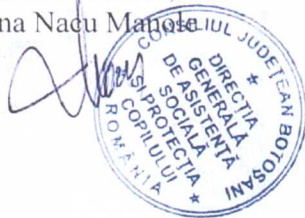 na Nacu Manole
CONSILIUL JUDEȚEAN BOTOȘANI
DIRECȚIA
GENERALĂ
DE ASISTENȚĂ
SOCIALĂ
ȘI PROTECȚIA
COPILULUI
ROMÂNIA